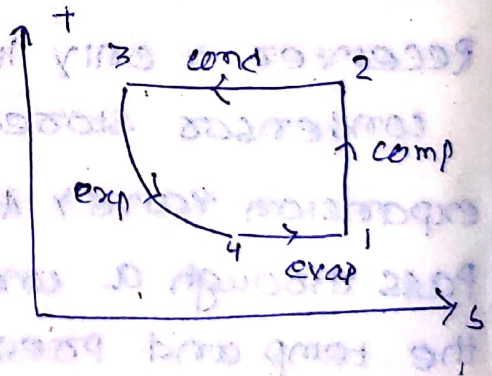 T
3 cond 2
comp
exp
4 1
evap
s